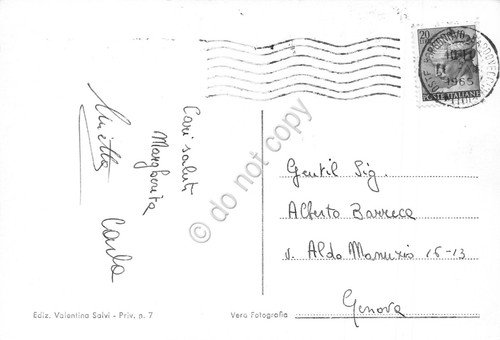 Cari saluti
Margherita
Carla
Gentil Sig.
Alberto Barreca
v. Aldo Manuzio 15-13
Genova
20
1965
POSTE ITALIANE
Ediz. Valentina Salvi - Priv. n. 7
Vera Fotografia
© do not copy